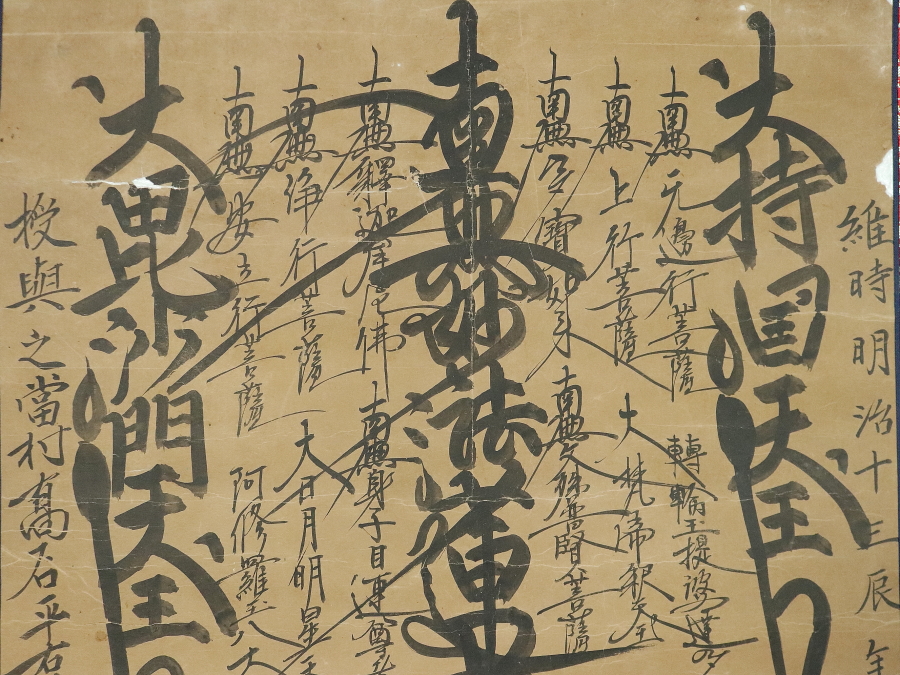 維時明治十三辰年
大持国天王
南無无邊行菩薩
南無上行菩薩
南無多寶如来
南無妙法蓮
南無釋迦牟尼佛
南無浄行菩薩
南無安立行菩薩
大毘沙門天王
轉輪王提婆達多
大梵帝釈天王
南無文殊普賢菩薩
南無身子目連尊者
大日月明星天
阿修羅王八大
授與之當村髙石平右